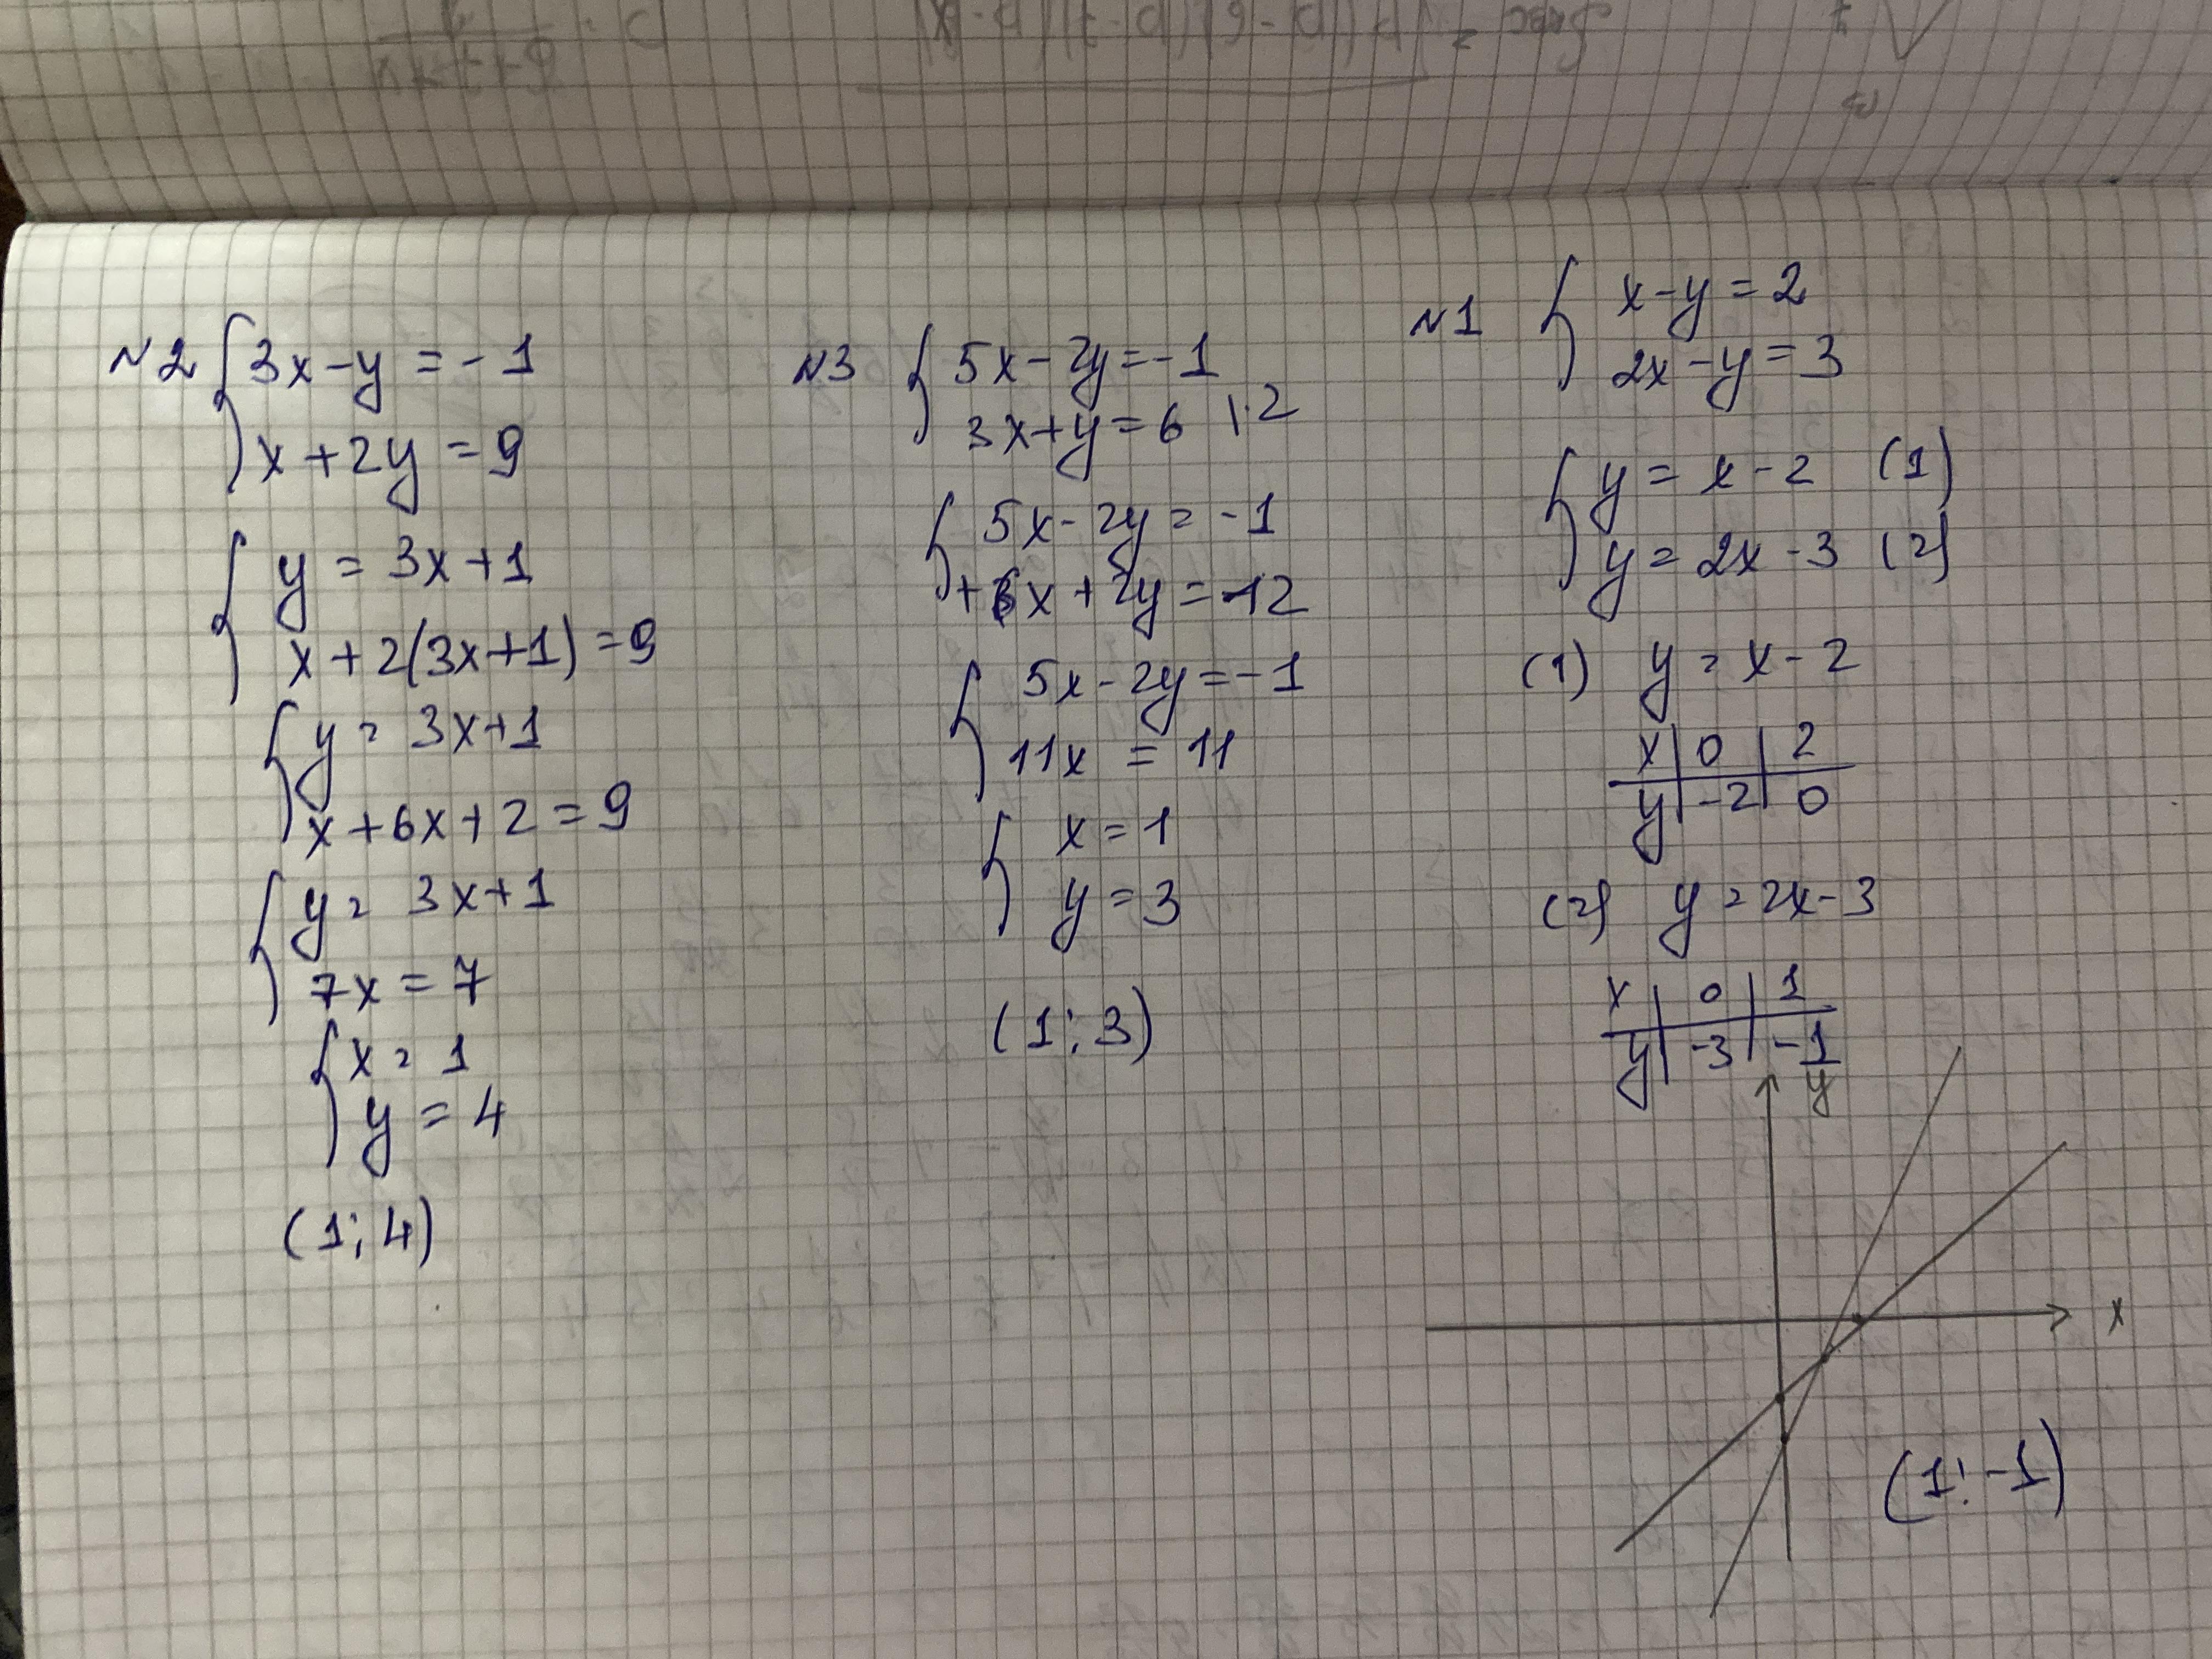 N2 { 3x-y = -1
x+2y = 9
{ y = 3x+1
x+2(3x+1) = 9
{ y = 3x+1
x+6x+2 = 9
{ y = 3x+1
7x = 7
{ x = 1
y = 4
(1; 4)
N3 { 5x-2y=-1
3x+y=6 |·2
{ 5x-2y = -1
+6x+2y = 12
{ 5x-2y = -1
11x = 11
{ x = 1
y = 3
(1; 3)
N1 { x-y = 2
2x-y = 3
{ y = x-2 (1)
y = 2x-3 (2)
(1) y = x-2
x | 0 | 2
y | -2 | 0
(2) y = 2x-3
x | 0 | 1
y | -3 | -1
y
x
(1; -1)